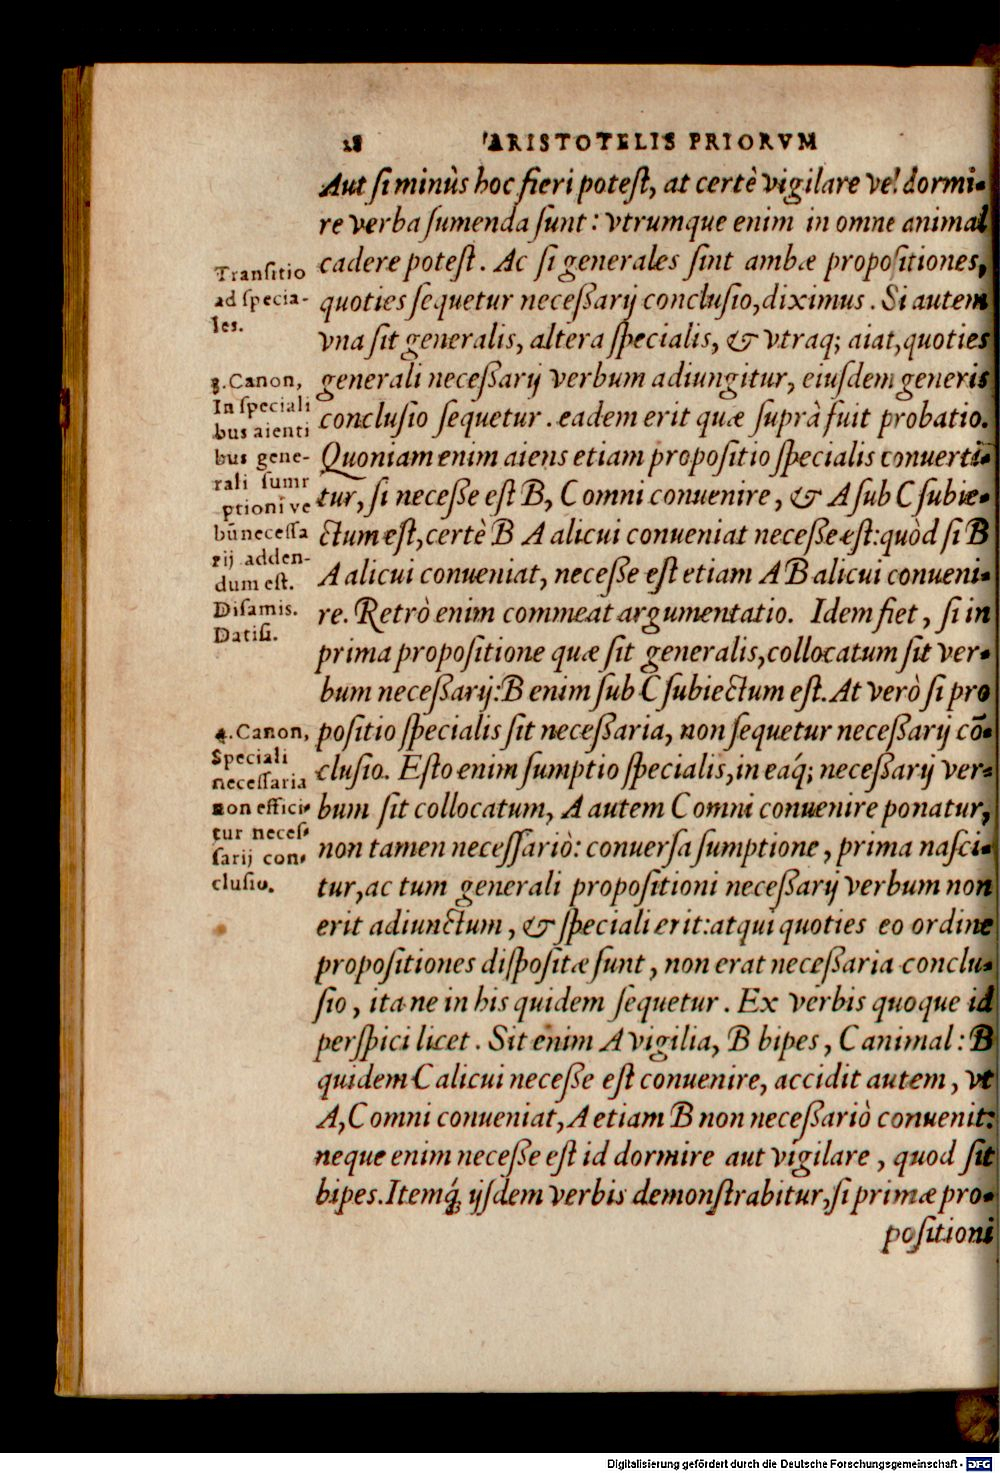 28 ARISTOTELIS PRIORVM
Aut si minùs hoc fieri potest, at certè vigilare vel dormi-
re verba sumenda sunt: vtrumque enim in omne animal
cadere potest. Ac si generales sint ambæ propositiones,
quoties sequetur necessarij conclusio, diximus. Si autem
vna sit generalis, altera specialis, & vtraq; aiat, quoties
generali necessarij verbum adiungitur, eiusdem generis
conclusio sequetur. eadem erit quæ suprà fuit probatio.
Quoniam enim aiens etiam propositio specialis conuerti-
tur, si necesse est B, C omni conuenire, & A sub C subie-
ctum est, certè B A alicui conueniat necesse est: quòd si B
A alicui conueniat, necesse est etiam A B alicui conueni-
re. Retrò enim commeat argumentatio. Idem fiet, si in
prima propositione quæ sit generalis, collocatum sit ver-
bum necessarij: B enim sub C subiectum est. At verò si pro
positio specialis sit necessaria, non sequetur necessarij cō-
clusio. Esto enim sumptio specialis, in eaq́; necessarij ver-
bum sit collocatum, A autem C omni conuenire ponatur,
non tamen necessariò: conuersa sumptione, prima nasci-
tur, ac tum generali propositioni necessarij verbum non
erit adiunctum, & speciali erit: atqui quoties eo ordine
propositiones dispositæ sunt, non erat necessaria conclu-
sio, ita ne in his quidem sequetur. Ex verbis quoque id
perspici licet. Sit enim A vigilia, B bipes, C animal: B
quidem C alicui necesse est conuenire, accidit autem, vt
A, C omni conueniat, A etiam B non necessariò conuenit:
neque enim necesse est id dormire aut vigilare, quod sit
bipes. Itemq́; ijsdem verbis demonstrabitur, si primæ pro-
positioni
Transitio
ad specia-
les.
3. Canon,
In speciali
bus aienti
bus gene-
rali sum
ptioni ve
bū necessa
rij adden-
dum est.
Disamis.
Datisi.
4. Canon,
Speciali
necessaria
non effici-
tur neces-
sarij con-
clusio.
Digitalisierung gefördert durch die Deutsche Forschungsgemeinschaft - DFG